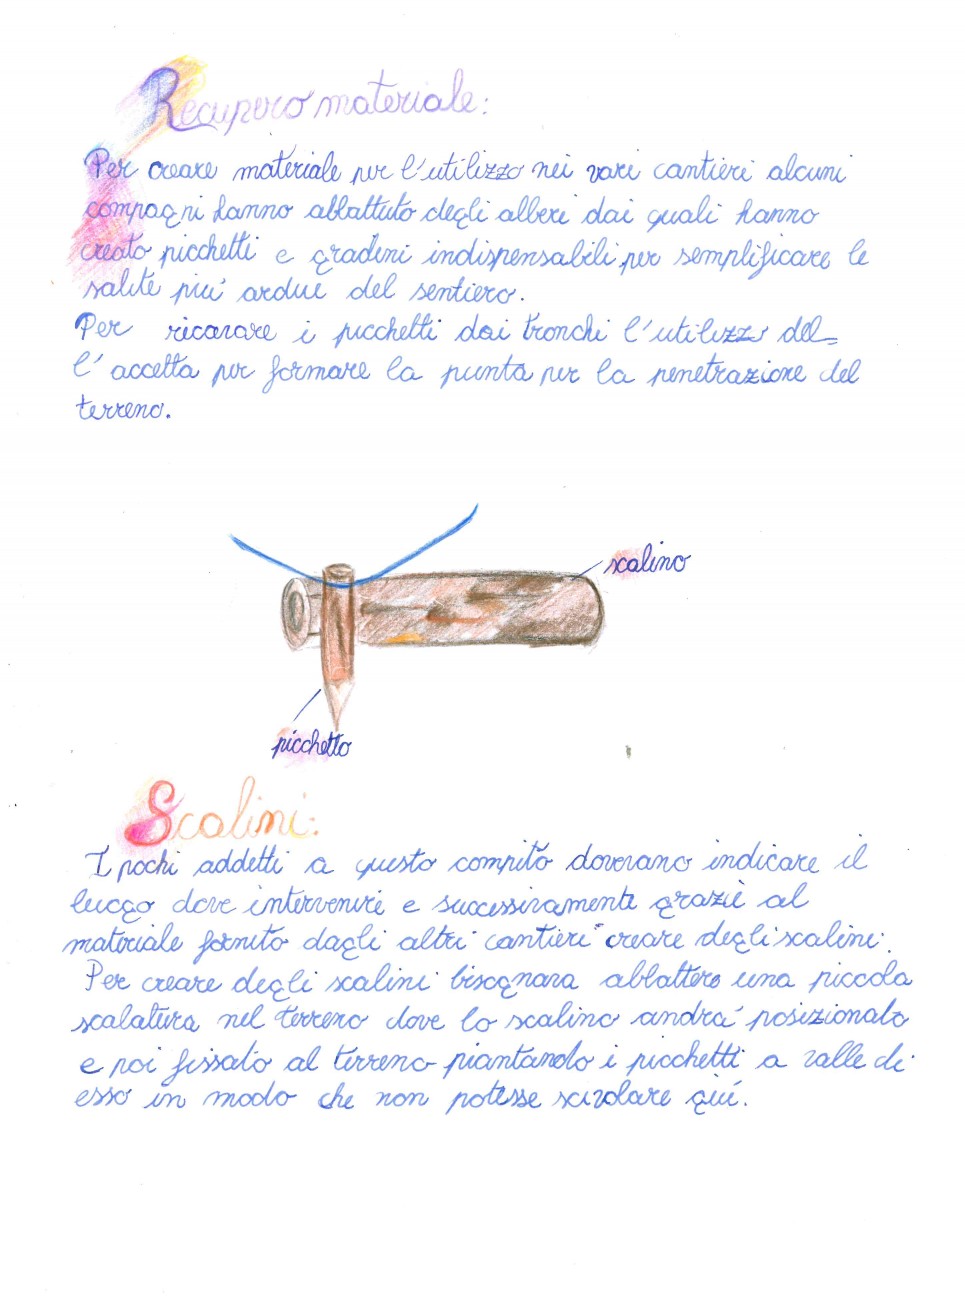 Recupero materiale:
Per creare materiale per l'utilizzo nei vari cantieri alcuni
compagni hanno abbattuto degli alberi dai quali hanno
creato picchetti e gradini indispensabili per semplificare le
salite più ardue del sentiero.
Per ricavare i picchetti dai tronchi l'utilizzo del=
l'accetta per formare la punta per la penetrazione del
terreno.
scalino
picchetto
Scalini:
I pochi addetti a questo compito dovevano indicare il
luogo dove intervenire e successivamente grazie al
materiale fornito dagli altri cantieri creare degli scalini.
Per creare degli scalini bisognava abbattere una piccola
scalatura nel terreno dove lo scalino andrà posizionato
e poi fissato al terreno piantando i picchetti a valle di
esso in modo che non potesse scivolare giù.